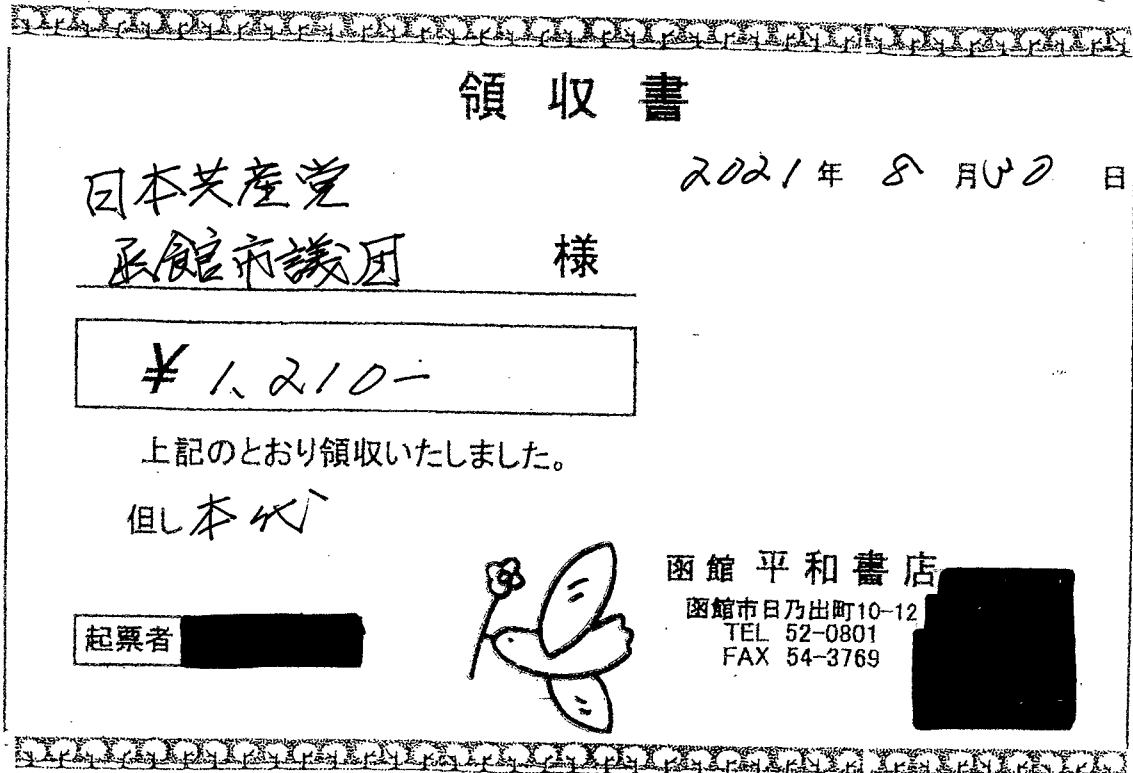 領収書
2021年 8月30日
日本共産党
函館市議団 様
¥1,210-
上記のとおり領収いたしました。
但し本代
函館 平和書店
函館市日乃出町10-12
TEL 52-0801
FAX 54-3769
起票者